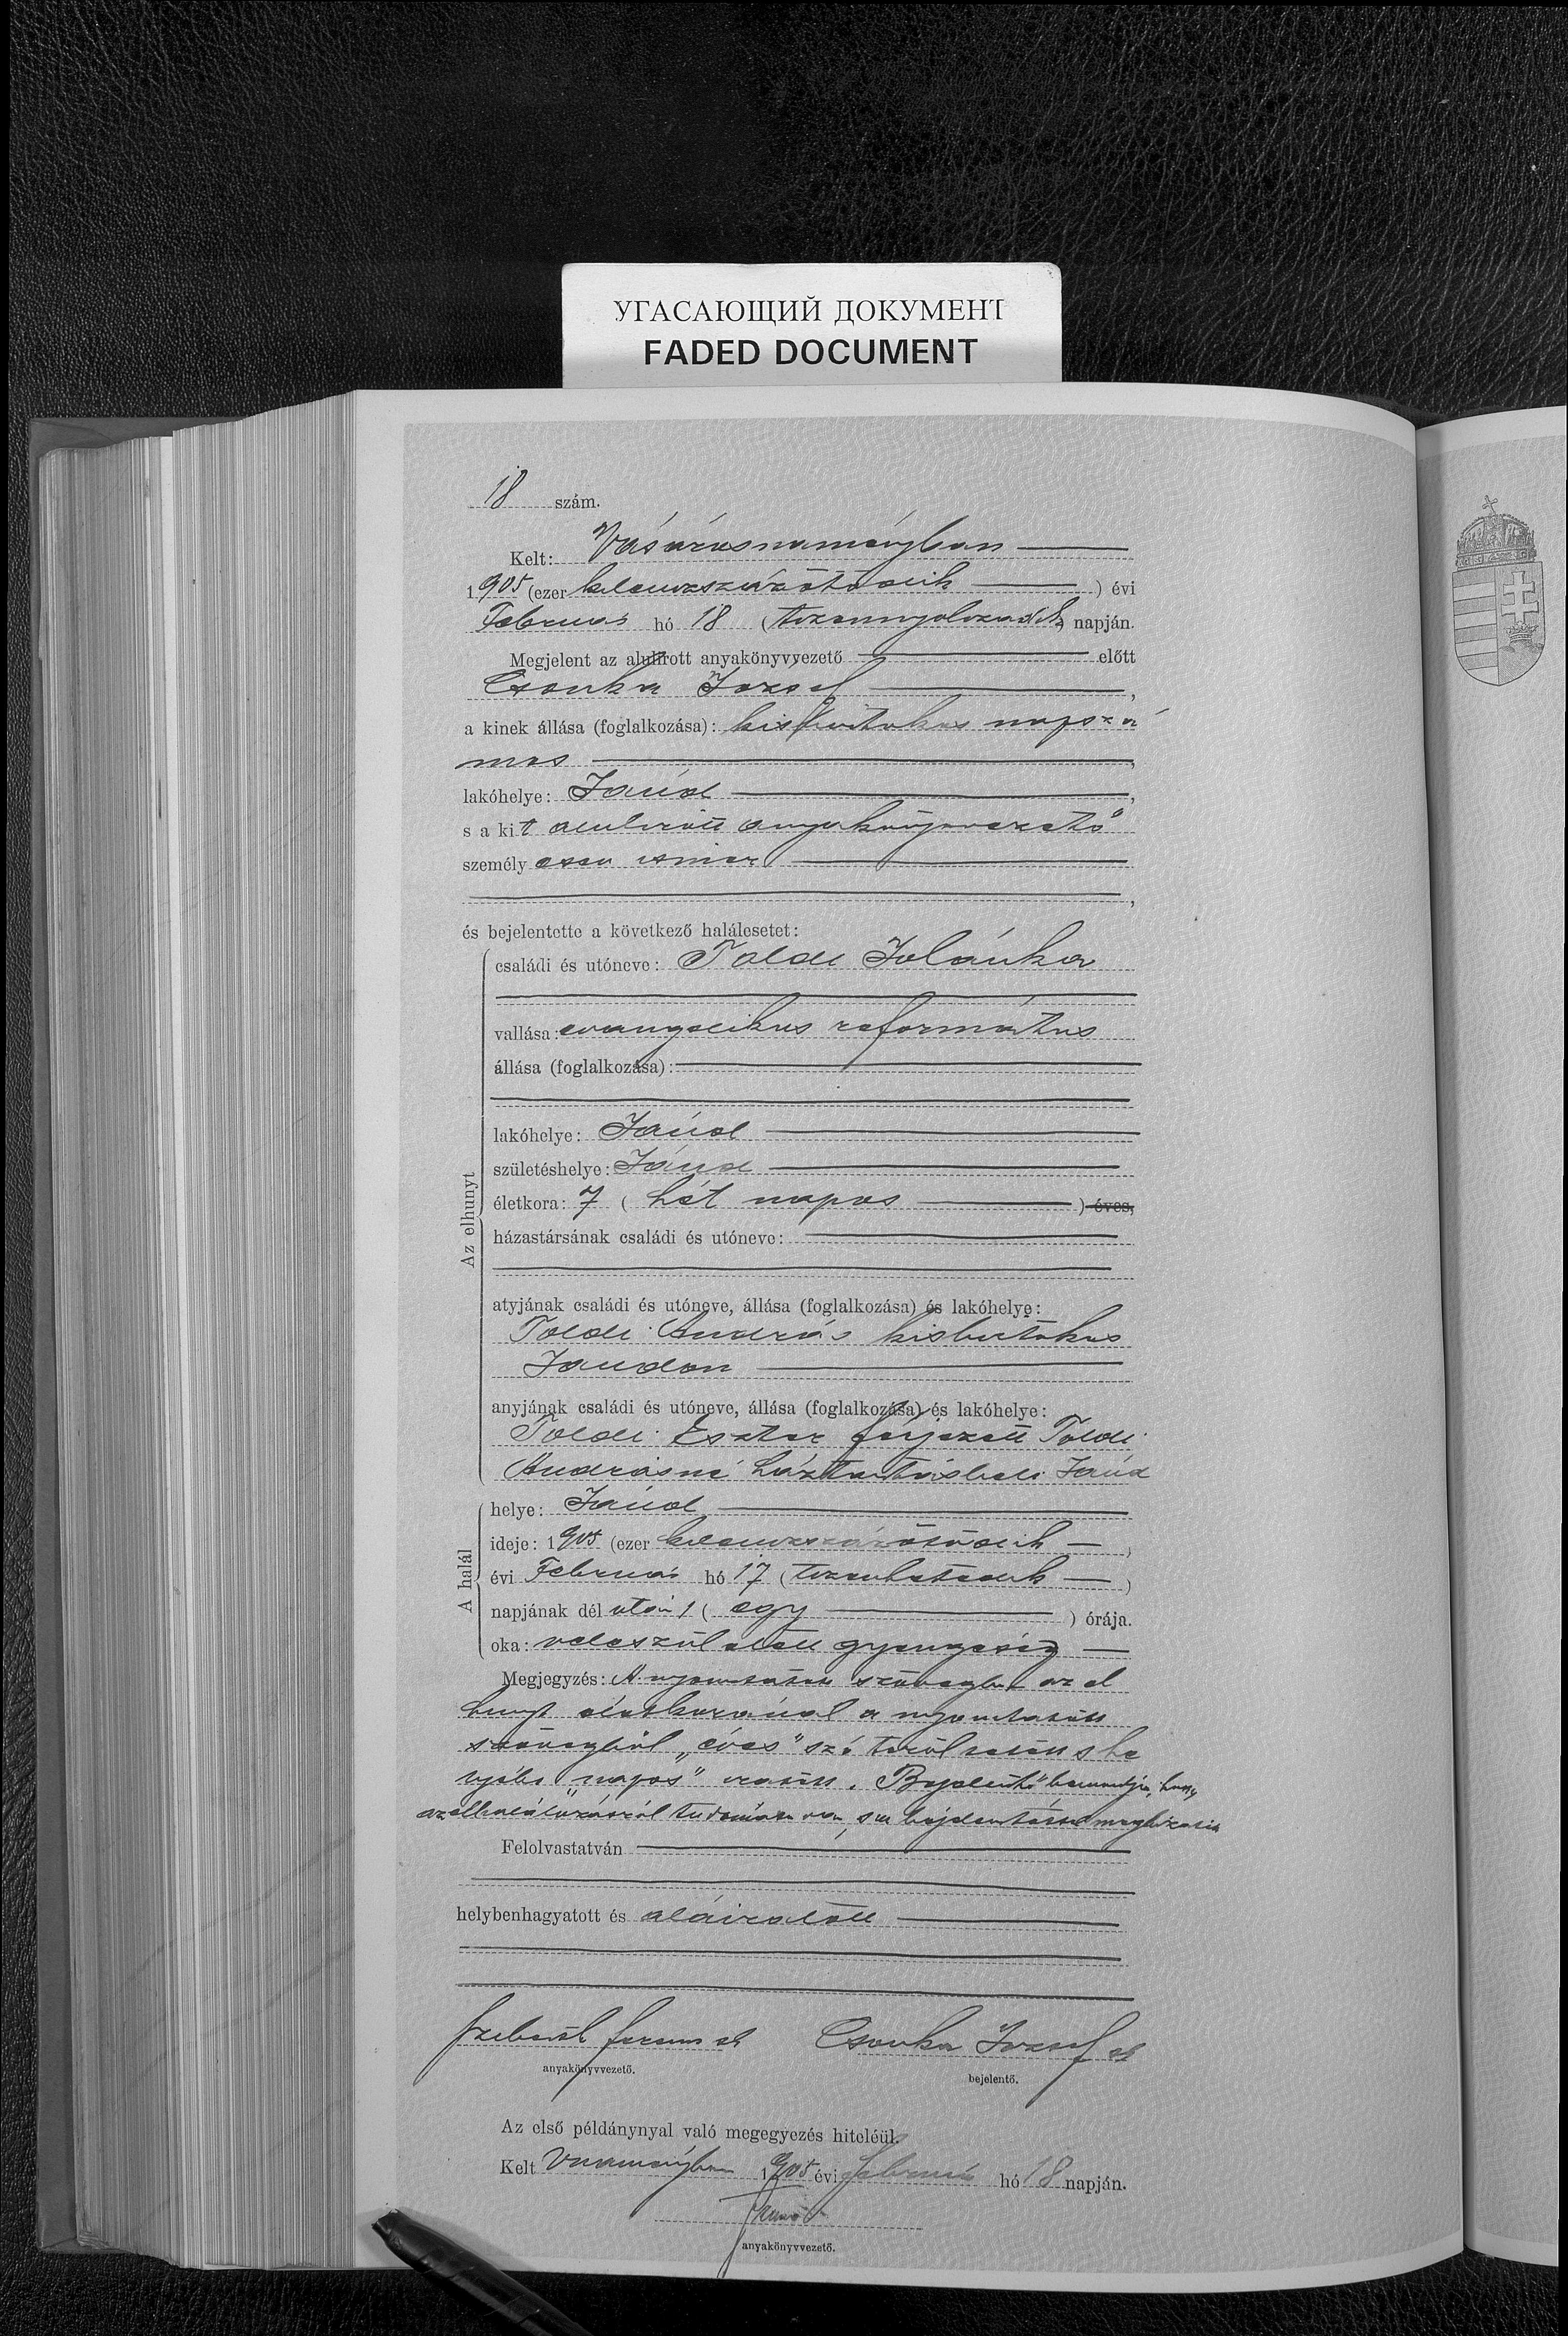 УГАСАЮЩИЙ ДОКУМЕНТ
FADED DOCUMENT
18 szám.
Kelt: Vásárosnaményban
1905 (ezer kilenczszázötödik) évi
Február hó 18 (tizennyolczadik) napján.
Megjelent az alulirott anyakönyvvezető előtt
Csonka József,
a kinek állása (foglalkozása): kisbirtokos napszá
mos,
lakóhelye: Jánd,
s a kit alulirott anyakönyvvezető
személyesen ismer
,
és bejelentette a következő halálesetet:
Az elhunyt
családi és utóneve: Toldi Jolánka
vallása: evangelikus református
állása (foglalkozása):
lakóhelye: Jánd
születéshelye: Jánd
életkora: 7 (hét napos) éves,
házastársának családi és utóneve:
atyjának családi és utóneve, állása (foglalkozása) és lakóhelye:
Toldi András kisbirtokos
Jándon
anyjának családi és utóneve, állása (foglalkozása) és lakóhelye:
Toldi Eszter férjezett Toldi
Andrásné háztartásbeli Jánd
A halál
helye: Jánd
ideje: 1905 (ezer kilenczszázötödik)
évi Február hó 17 (tizenhetedik)
napjának dél után 1 (egy) órája.
oka: veleszületett gyengeség
Megjegyzés: A nyomtatott szövegben az el
hunyt életkoránál a nyomtatott
szövegből „éves" szó töröltetett s he
lyébe „napos" iratott. Bejelentő bemondja, hogy
az elhalálozásról tudomása van, s a bejelentéssel megbizatott
Felolvastatván
helybenhagyatott és aláiratott
Ferencz sk Csonka József sk
anyakönyvvezető. bejelentő.
Az első példánynyal való megegyezés hiteléül.
Kelt Vnaményban 1905 évi február hó 18 napján.
anyakönyvvezető.